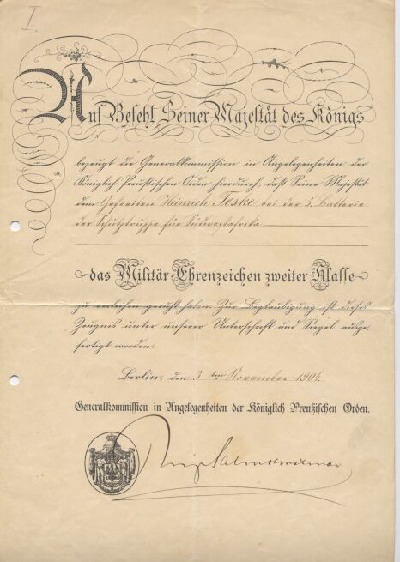 I.
Auf Befehl Seiner Majestät des Königs
bezeugt die Generalkommission in Angelegenheiten der
Königlich Preußischen Orden hierdurch, daß Seine Majestät
dem Gefreiten Heinrich Teske bei der 3. Batterie
der Schutztruppe für Südwestafrika
das Militär-Ehrenzeichen zweiter Klasse
zu verleihen geruht haben. Zur Beglaubigung ist dieses
Zeugnis unter unserer Unterschrift und Siegel ausge
fertigt worden.
Berlin, den 3ten November 190
Generalkommission in Angelegenheiten der Königlich Preußischen Orden.